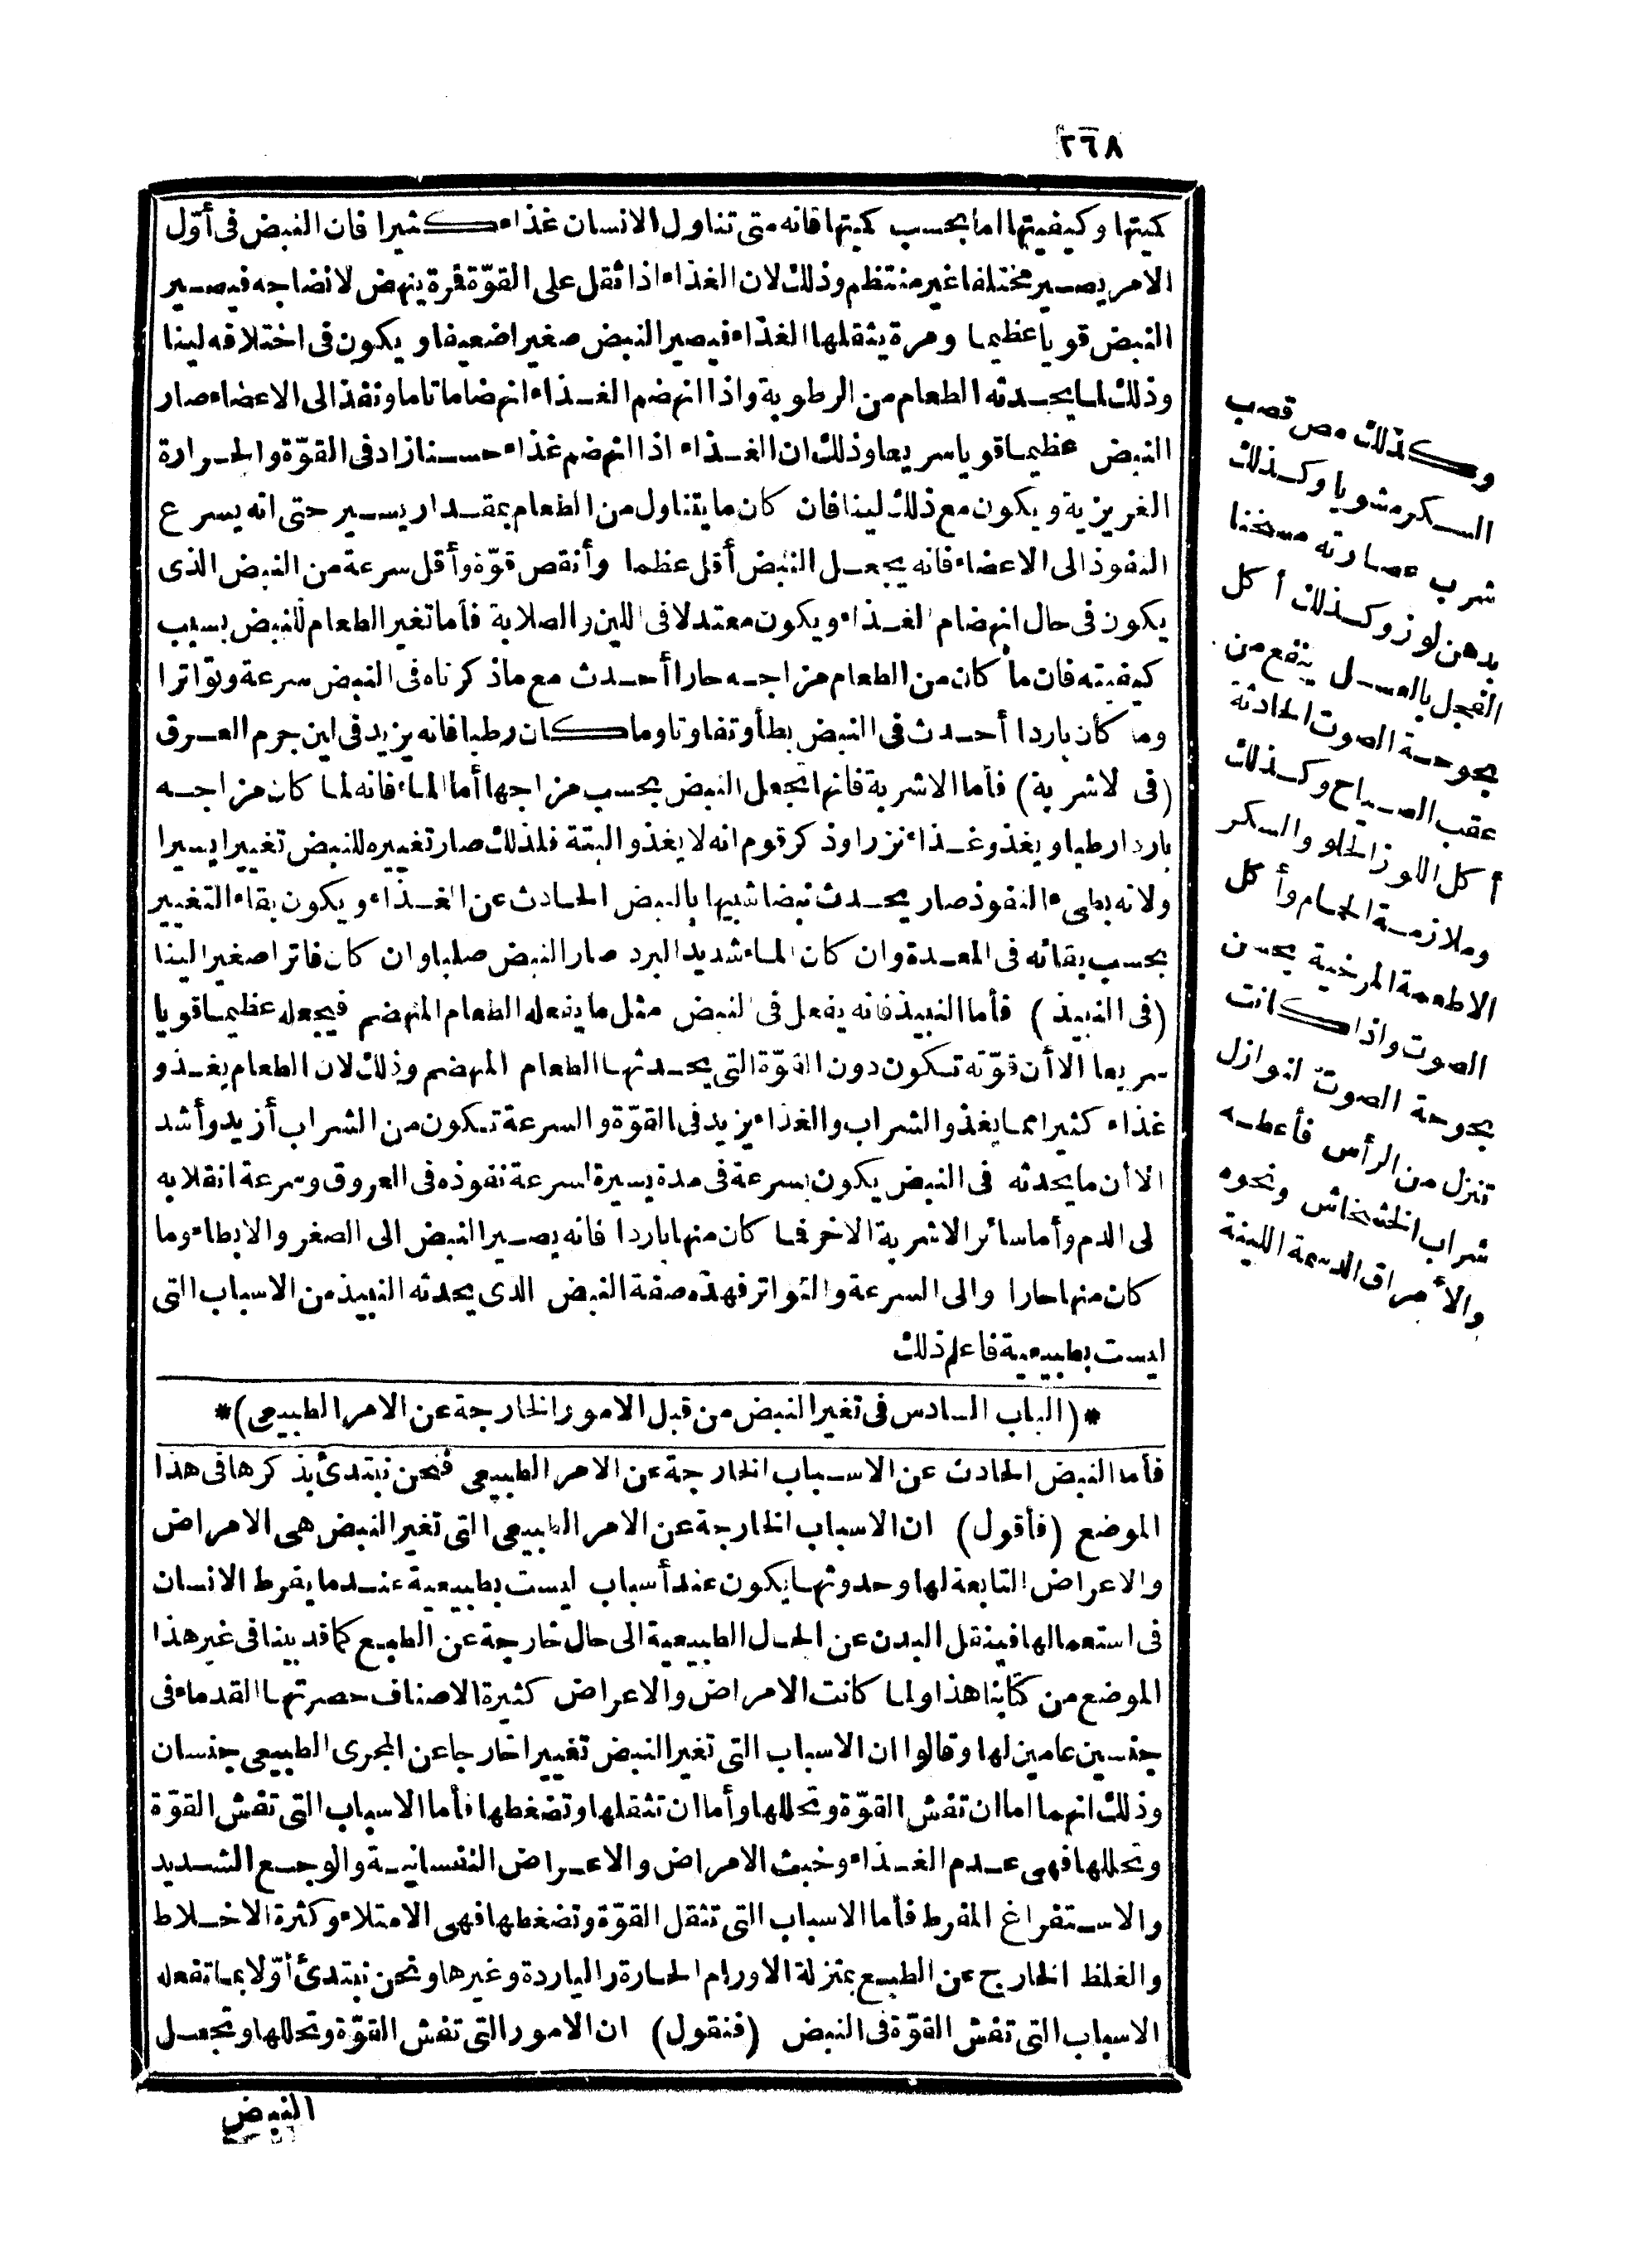 ٢٦٨
كميتها وكيفيتها اما بحسب كميتها فانه متى تناول الانسان غذاء كثيرا فان النبض فى أوّل
الامر يصير مختلفا غير منتظم وذلك لان الغذاء اذا ثقل على القوّة فمرة ينهض لانضاجه فيصير
النبض قويا عظيما ومرة يثقلها الغذاء فيصير النبض صغيرا ضعيفا ويكون فى اختلافه لينا
وذلك لما يحدثه الطعام من الرطوبة واذا انهضم الغذاء انهضاما تاما ونفذ الى الاعضاء صار
النبض عظيما قويا سريعا وذلك ان الغذاء اذا انهضم غذاء حسنا زاد فى القوّة والحرارة
الغريزية ويكون مع ذلك لينا فان كان ما يتناول من الطعام بمقدار يسير حتى انه يسرع
النفوذ الى الاعضاء فانه يجعل النبض أقل عظما وأنقص قوّة وأقل سرعة من النبض الذى
يكون فى حال انهضام الغذاء ويكون معتدلا فى اللين والصلابة فأما تغير الطعام للنبض بسبب
كيفيته فان ما كان من الطعام مزاجه حارا أحدث مع ماذكرناه فى النبض سرعة وتواترا
وما كان باردا أحدث فى النبض بطأ وتفاوتا وما كان رطبا فانه يزيد فى لين جرم العرق
(فى لاشربة) فأما الاشربة فانها تجعل النبض بحسب مزاجها أما الماء فانه لما كان مزاجه
باردا رطبا ويغذو غذاء نزرا وذكر قوم انه لا يغذو البتة فلذلك صار تغييره للنبض تغييرا يسيرا
ولانه بطىء النفوذ صار يحدث نبضا شبيها بالنبض الحادث عن الغذاء ويكون بقاء التغيير
بحسب بقائه فى المعدة وان كان الماء شديد البرد صار النبض صلبا وان كان فاترا صغيرا لينا
(فى النبيذ) فأما النبيذ فانه يفعل فى النبض مثل ما يفعله الطعام المنهضم فيجعله عظيما قويا
سريعا الا أن قوّته تكون دون القوّة التى يحدثها الطعام المنهضم وذلك لان الطعام يغذو
غذاء كثيرا مما يغذو الشراب والغذاء يزيد فى القوّة والسرعة تكون من الشراب أزيد وأشد
الا أن ما يحدثه فى النبض يكون بسرعة فى مدة يسيرة لسرعة نفوذه فى العروق وسرعة انقلابه
لى الدم وأما سائر الاشربة الاخر فما كان منها باردا فانه يصير النبض الى الصغر والابطاء وما
كان منها حارا والى السرعة والتواتر فهذه صفة النبض الذى يحدثه النبيذ من الاسباب التى
ليست بطبيعية فاعلم ذلك
*(الباب السادس فى تغير النبض من قبل الامور الخارجة عن الامر الطبيعى)*
فأما النبض الحادث عن الاسباب الخارجة عن الامر الطبيعى فنحن نبتدئ بذكرها فى هذا
الموضع (فأقول) ان الاسباب الخارجة عن الامر الطبيعى التى تغير النبض هى الامراض
والاعراض التابعة لها وحدوثها يكون عند أسباب ليست بطبيعية عندما يفرط الانسان
فى استعمالها فينقل البدن عن الحال الطبيعية الى حال خارجة عن الطبع كما قد بينا فى غير هذا
الموضع من كتابنا هذا ولما كانت الامراض والاعراض كثيرة الاصناف حصرتها القدماء فى
جنسين عامين لها وقالوا ان الاسباب التى تغير النبض تغييرا خارجا عن المجرى الطبيعى جنسان
وذلك انهما اما ان تفش القوّة وتحللها وأما ان تثقلها وتضغطها فأما الاسباب التى تفش القوّة
وتحللها فهى عدم الغذاء وخبث الامراض والاعراض النفسانية والوجع الشديد
والاستفراغ المفرط فأما الاسباب التى تثقل القوّة وتضغطها فهى الامتلاء وكثرة الاخلاط
والغلظ الخارج عن الطبع بمنزلة الاورام الحارة والباردة وغيرها ونحن نبتدئ أوّلا بما تفعله
الاسباب التى تفش القوّة فى النبض (فنقول) ان الامور التى تفش القوّة وتحللها وتجعل
النبض
وكذلك مص قصب
السكر مشويا وكذلك
شرب عصارته مسخنا
بدهن لوز وكذلك أكل
الفجل بالعسل ينفع من
بحوحة الصوت الحادثة
عقب الصياح وكذلك
أكل اللوز الحلو والسكر
وملازمة الحمام وأكل
الاطعمة المرخية يحسن
الصوت واذا كانت
بحوحة الصوت لنوازل
تنزل من الرأس فأعطه
شراب الخشخاش ونحوه
والأمراق الدسمة اللينة